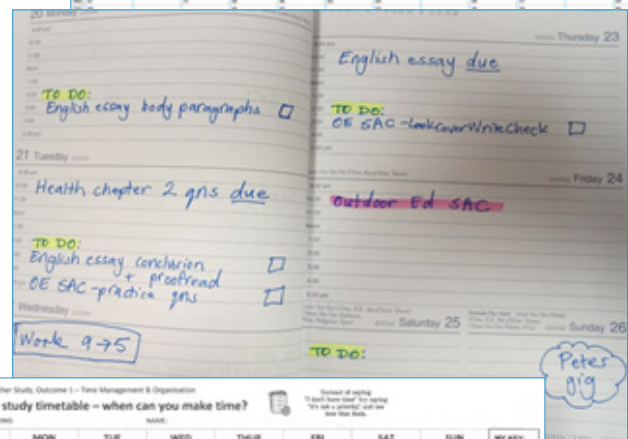 20 Monday
TO DO:
English essay body paragraphs
21 Tuesday
Health chapter 2 qns due
TO DO:
English essay conclusion
+ proofread
OE SAC - practice qns
Wednesday
Work 9→5
Thursday 23
English essay due
TO DO:
OE SAC - LookCoverWriteCheck
Friday 24
Outdoor Ed SAC
Saturday 25
TO DO:
Sunday 26
Peter
gig
her Study, Outcome 1 – Time Management & Organisation
study timetable – when can you make time?
Instead of saying
"I don't have time" try saying
"It's not a priority" and see
how that feels.
NAME:
MON TUE WED THUR FRI SAT SUN MY KEY